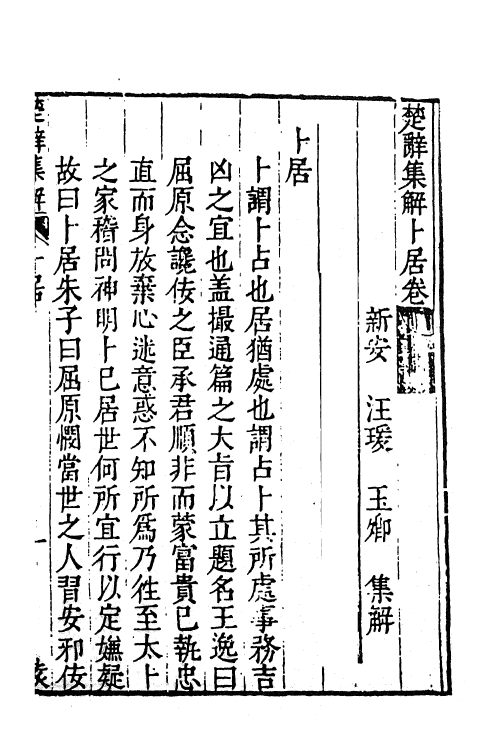 楚辭集解卜居卷
新安 汪瑗 玉卿 集解
卜居
卜謂卜占也居猶處也謂占卜其所處事務吉
凶之宜也蓋撮通篇之大旨以立題名王逸曰
屈原念讒佞之臣承君順非而蒙富貴已執忠
直而身放棄心迷意惑不知所爲乃徃至太卜
之家稽問神明卜已居世何所宜行以定嫌疑
故曰卜居朱子曰屈原憫當世之人習安邪佞
楚辭集解 卜居 一